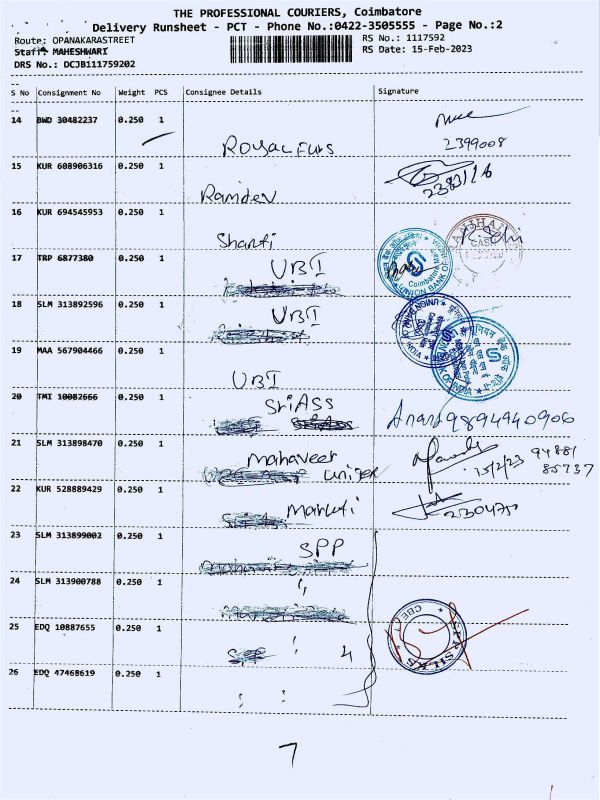 THE PROFESSIONAL COURIERS, Coimbatore
Delivery Runsheet - PCT - Phone No.:0422-3505555 - Page No.:2
Route: OPANAKARASTREET
RS No.: 1117592
Staff: MAHESHWARI
RS Date: 15-Feb-2023
DRS No.: DCJB111759202
S No Consignment No Weight PCS Consignee Details Signature
14 BWD 30482237 0.250 1
Royal Furs 2399008
15 KUR 608906316 0.250 1
Ramdev
16 KUR 694545953 0.250 1
Shanti
17 TRP 6877380 0.250 1
UBI
UNION BANK OF INDIA
Coimbatore Main
18 SLM 313892596 0.250 1
UBI
19 MAA 567904466 0.250 1
UBI
20 TMI 10082666 0.250 1
SriASS Anand 9894940906
21 SLM 313898470 0.250 1
Mahaveer
15/2/23 94881
85737
22 KUR 528889429 0.250 1
Maruti
23 SLM 313899002 0.250 1
SPP
24 SLM 313900788 0.250 1
"
25 EDQ 10887655 0.250 1
4
CBE
26 EDQ 47468619 0.250 1
7